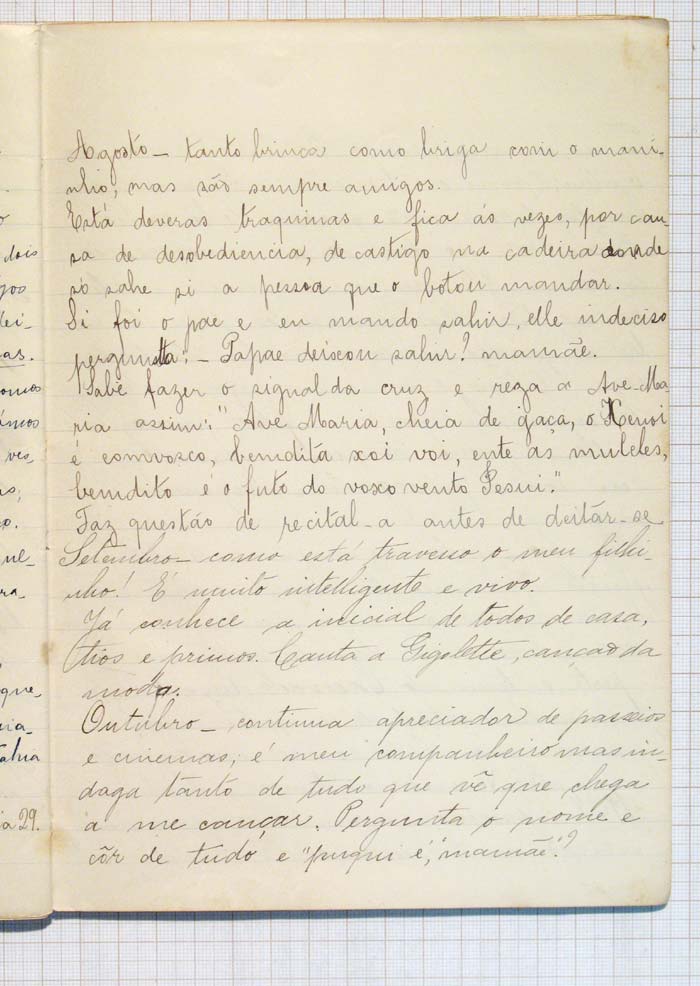 dois
gos
dei-
as.
omos
ves,
o.
ra-
que-
ia-
ia 29.
Agosto - tanto brinca como briga com o mani-
nho, mas são sempre amigos.
Está deveras traquinas e fica ás vezes, por cau-
sa de desobediencia, de castigo na cadeira donde
só sahe si a pessoa que o botou mandar.
Si foi o pae e eu mando sahir, elle indeciso
pergunta: - Papae deixou sahir? mamãe.
Sabe fazer o signal da cruz e reza a Ave-Ma
ria assim: "Ave Maria, cheia de gaça, o Xenoi
é comvosco, bemdita xoi voi, ente as muleles,
bemdito é o futo do voxo vento Jesui."
Faz questão de recital-a antes de deitar-se
Setembro - como está travesso o meu filhi-
nho! É muito intelligente e vivo.
Já conhece a inicial de todos de casa,
tios e primos. Canta a Gigolette, canção da
moda.
Outubro - continua apreciador de passeios
e cinemas; é meu companheiro mas in-
daga tanto de tudo que vê que chega
a me cançar. Pergunta o nome e
côr de tudo e "puqui é, "mamãe"?